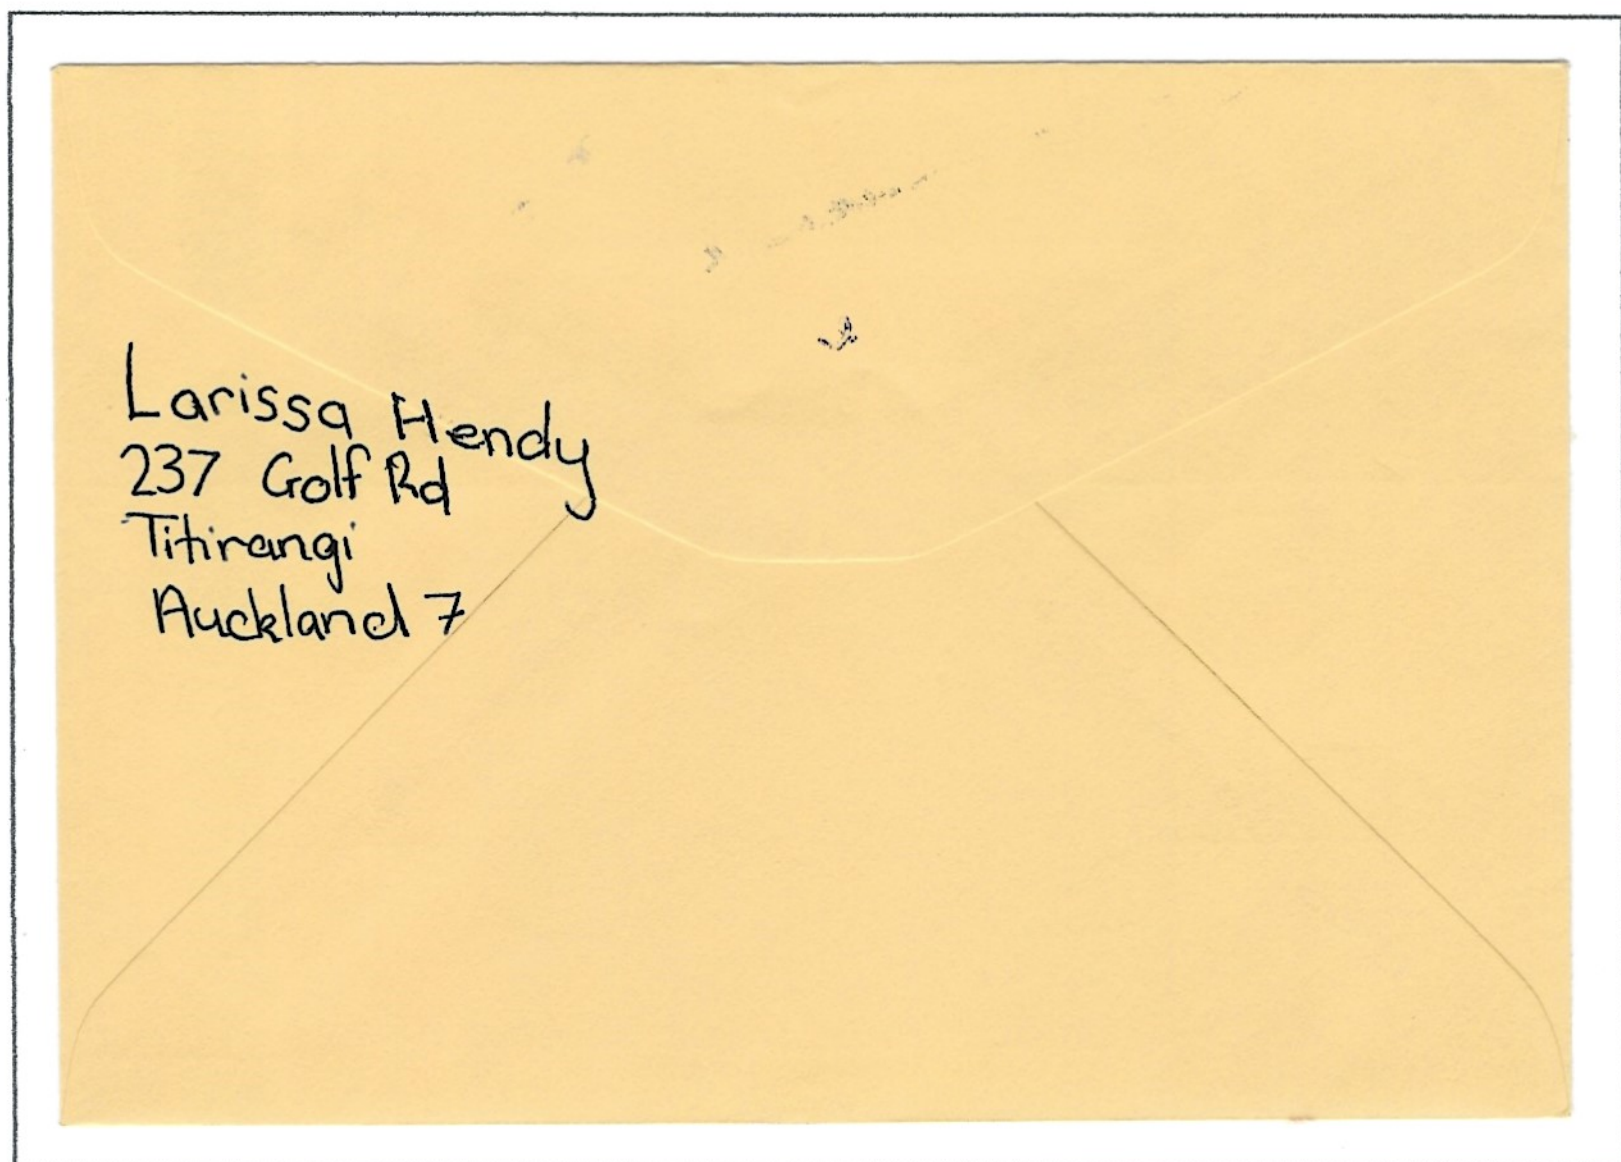 Larissa Hendy
237 Golf Rd
Titirangi
Auckland 7